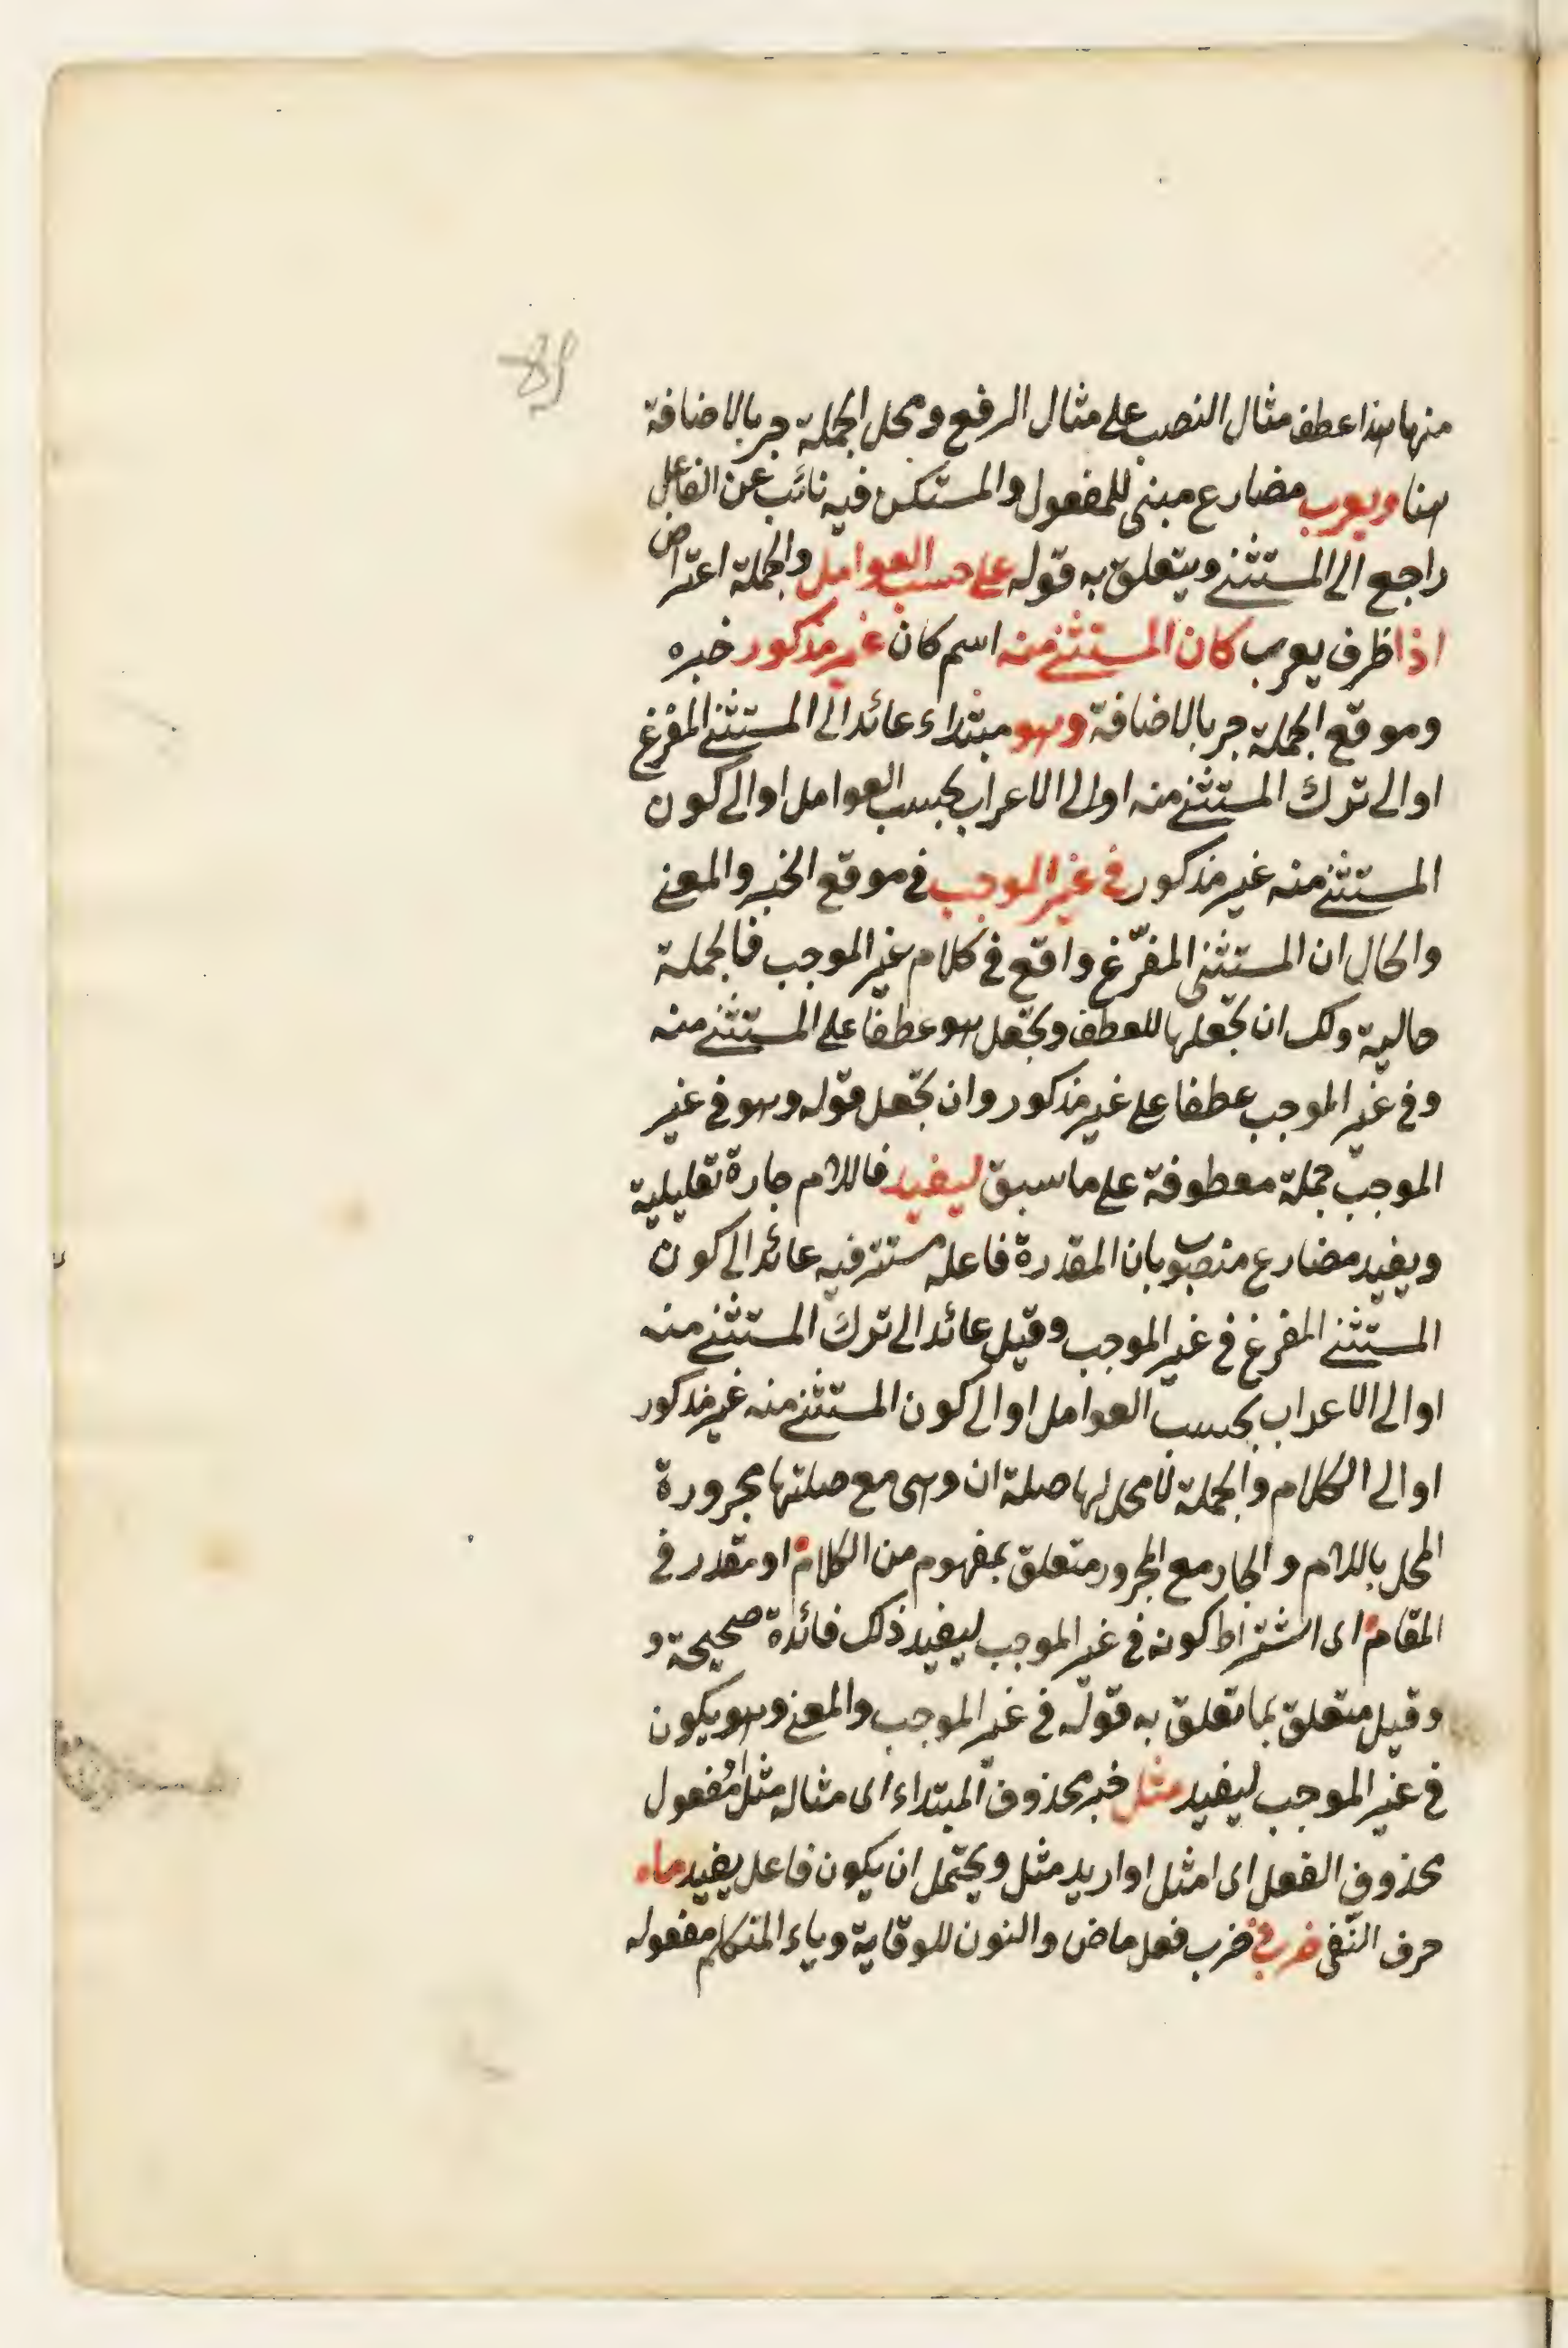 منها هذا عطف مثال النصب على مثال الرفع ومحل الجملة جر بالاضافة
هنا ويعرب مضارع مبنى للمفعول والمستكن فيه نائب عن الفاعل
راجع الى المستثنى ويتعلق به قوله على حسب العوامل والجملة اعتراض
اذا ظرف يعرب كان المستثنى منه اسم كان غير مذكور خبره
وموقع الجملة جر بالاضافة وهو مبتداء عائد الى المستثنى المفرغ
او الى ترك المستثنى منه او الى الاعراب بحسب العوامل او الى كون
المستثنى منه غير مذكور فى غير الموجب فى موقع الخبر والمعنى
والحال ان المستثنى المفرّغ واقع فى كلام غير الموجب فالجملة
حالية ولك ان تجعلها للعطف وتجعل هو عطفا على المستثنى منه
وفى غير الموجب عطفا على غير مذكور وان تجعل قوله وهو فى غير
الموجب جملة معطوفة على ما سبق ليفيد فاللام جارة تعليلية
ويفيد مضارع منصوب بان المقدرة فاعله مستتر فيه عائد الى كون
المستثنى المفرغ فى غير الموجب وقيل عائد الى ترك المستثنى منه
او الى الاعراب بحسب العوامل او الى كون المستثنى منه غير مذكور
او الى الكلام والجملة لا محل لها صلة ان وهى مع صلتها مجرورة
المحل باللام والجار مع المجرور متعلق بمفهوم من الكلام او مقدر فى
المقام اى اشتراط كونه فى غير الموجب ليفيد ذلك فائدة صحيحة و
وقيل متعلق بما تعلق به قوله فى غير الموجب والمعنى وهو يكون
فى غير الموجب ليفيد مثل خبر محذوف المبتداء اى مثاله مثل او مفعول
محذوف الفعل اى امثل او اريد مثل ويحتمل ان يكون فاعل يفيد ما
حرف النفى ضربنى ضرب فعل ماض والنون للوقاية وياء المتكلم مفعوله